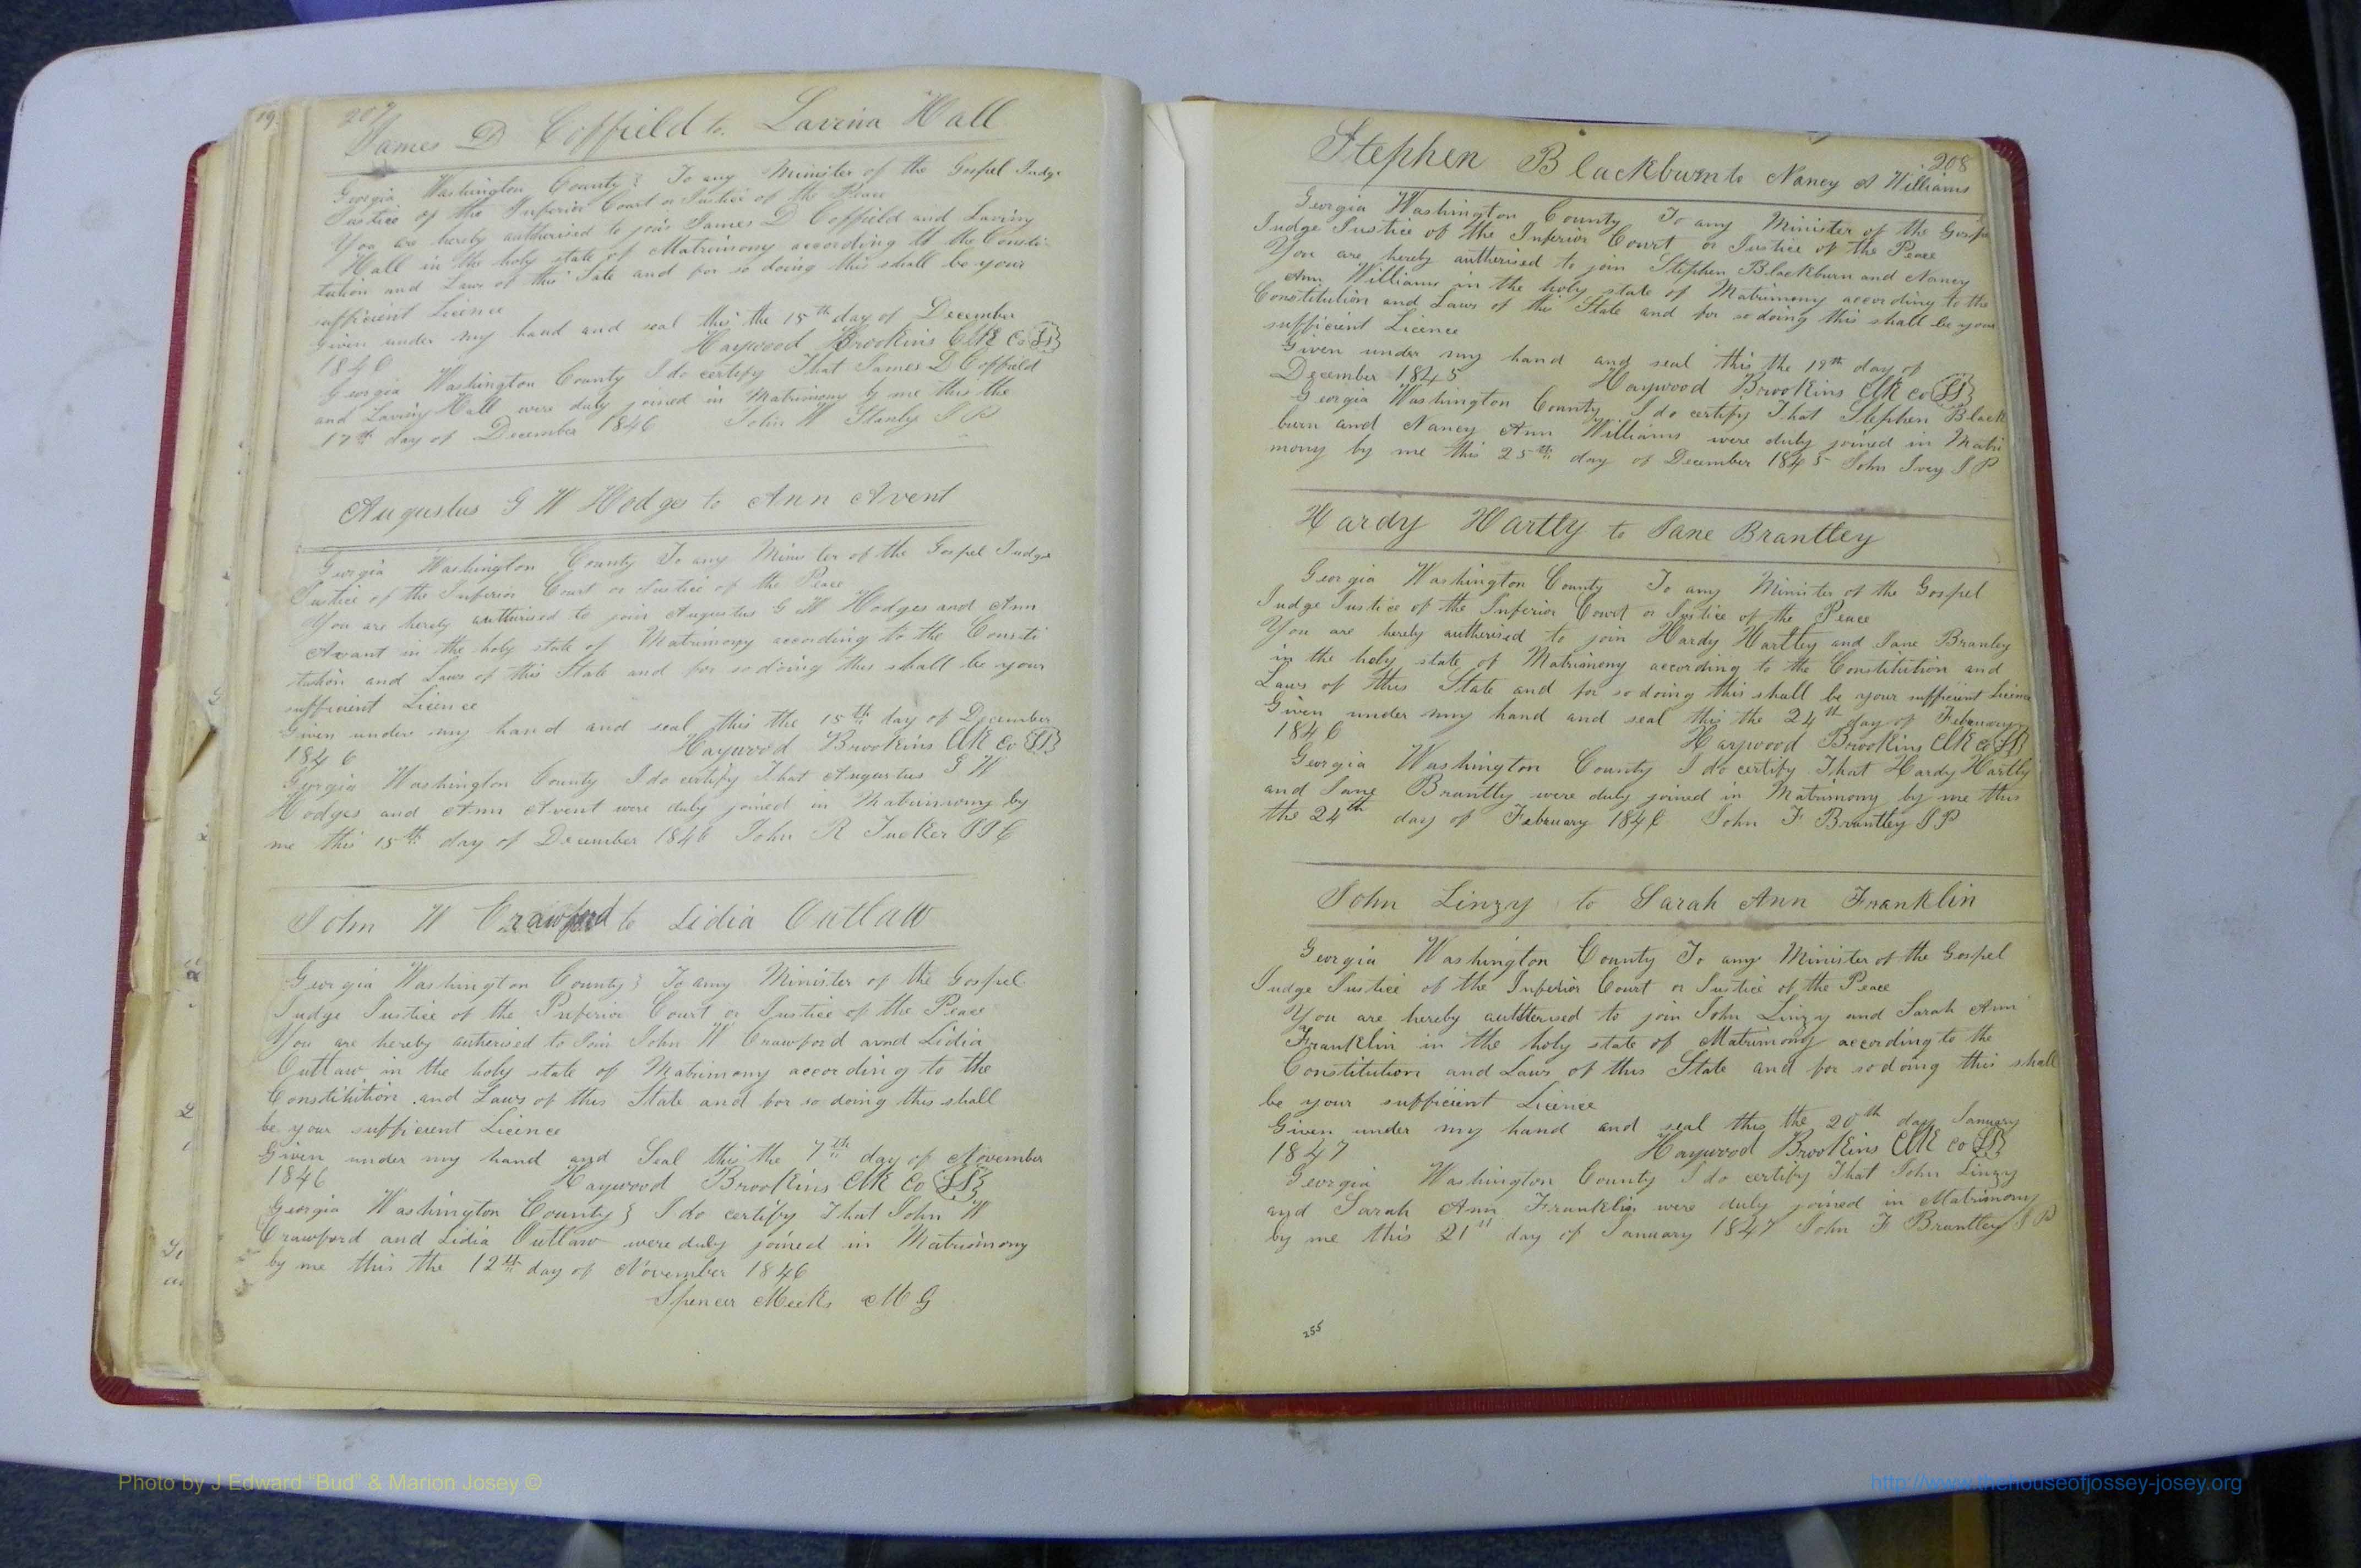 207
James D Coffield to Lavina Hall
Georgia Washington County } To any Minister of the Gospel Judge
Justice of the Inferior Court or Justice of the Peace
You are hereby autherised to join James D Coffield and Laviny
Hall in the holy state of Matrimony according to the Consti
tution and Laws of this Sate and for so doing this shall be your
sufficient Licence
Given under my hand and seal this the 15th day of December
1846 Haywood Brookins Clk Co
Georgia Washington County I do certify That James D Coffield
and Laviny Hall were duly joined in Matrimony by me this the
17th day of December 1846 John W Stanly J P
Augustus G W Hodges to Ann Avent
Georgia Washington County To any Minister of the Gospel Judge
Justice of the Inferior Court or Justice of the Peace
You are hereby autherised to join Augustus G W Hodges and Ann
Avant in the holy state of Matrimony according to the Consti
tution and Laws of this State and for so doing this shall be your
sufficient Licence
Given under my hand and seal this the 15th day of December
1846 Haywood Brookins Clk Co
Georgia Washington County I do certify That Augustus G W
Hodges and Ann Avent were duly joined in Matrimony by
me this 15th day of December 1846 John R Tucker J I C
John W Crawford to Lidia Outlaw
Georgia Washington County } To any Minister of the Gospel
Judge Justice of the Inferior Court or Justice of the Peace
You are hereby autherised to Join John W Crawford and Lidia
Outlaw in the holy state of Matrimony according to the
Constitution and Laws of this State and for so doing this shall
be your sufficient Licence
Given under my hand and Seal this the 7th day of November
1846 Haywood Brookins Clk Co
Georgia Washington County } I do certify That John W
Crawford and Lidia Outlaw were duly joined in Matrimony
by me this the 12th day of November 1846
Spencer Meeks M G
208
Stephen Blackburn to Nancy A Williams
Georgia Washington County To any Minister of the Gospe
Judge Justice of the Inferior Court or Justice of the Peace
You are hereby autherised to join Stephen Blackburn and Nancy
Ann Williams in the holy state of Matrimony according to the
Constitution and Laws of this State and for so doing this shall be your
sufficient Licence
Given under my hand and seal this the 19th day of
December 1845 Haywood Brookins Clk Co
Georgia Washington County I do certify That Stephen Black
burn and Nancy Ann Williams were duly joined in Matri
mony by me this 25th day of December 1845 John Ivey J P
Hardy Hartly to Jane Brantley
Georgia Washington County To any Minister of the Gospel
Judge Justice of the Inferior Court or Justice of the Peace
You are hereby autherised to join Hardy Hartley and Jane Branley
in the holy state of Matrimony according to the Constitution and
Laws of this State and for so doing this shall be your sufficient Licence
Given under my hand and seal this the 24th day of February
1846 Haywood Brookins Clk Co
Georgia Washington County I do certify That Hardy Hartly
and Jane Brantly were duly joined in Matrimony by me this
the 24th day of February 1846 John F Brantley J P
John Linzy to Sarah Ann Franklin
Georgia Washington County To any Minister of the Gospel
Judge Justice of the Inferior Court or Justice of the Peace
You are hereby autherised to join John Linzy and Sarah Ann
Franklin in the holy state of Matrimony according to the
Constitution and Laws of this State and for so doing this shall
be your sufficient Licence
Given under my hand and seal this the 20th day January
1847 Haywood Brookins Clk Co
Georgia Washington County I do certify That John Linzy
and Sarah Ann Franklin were duly joined in Matrimony
by me this 21st day of January 1847 John F Brantley J P
255
Photo by J Edward "Bud" & Marion Josey ©
http://www.thehouseofjossey-josey.org